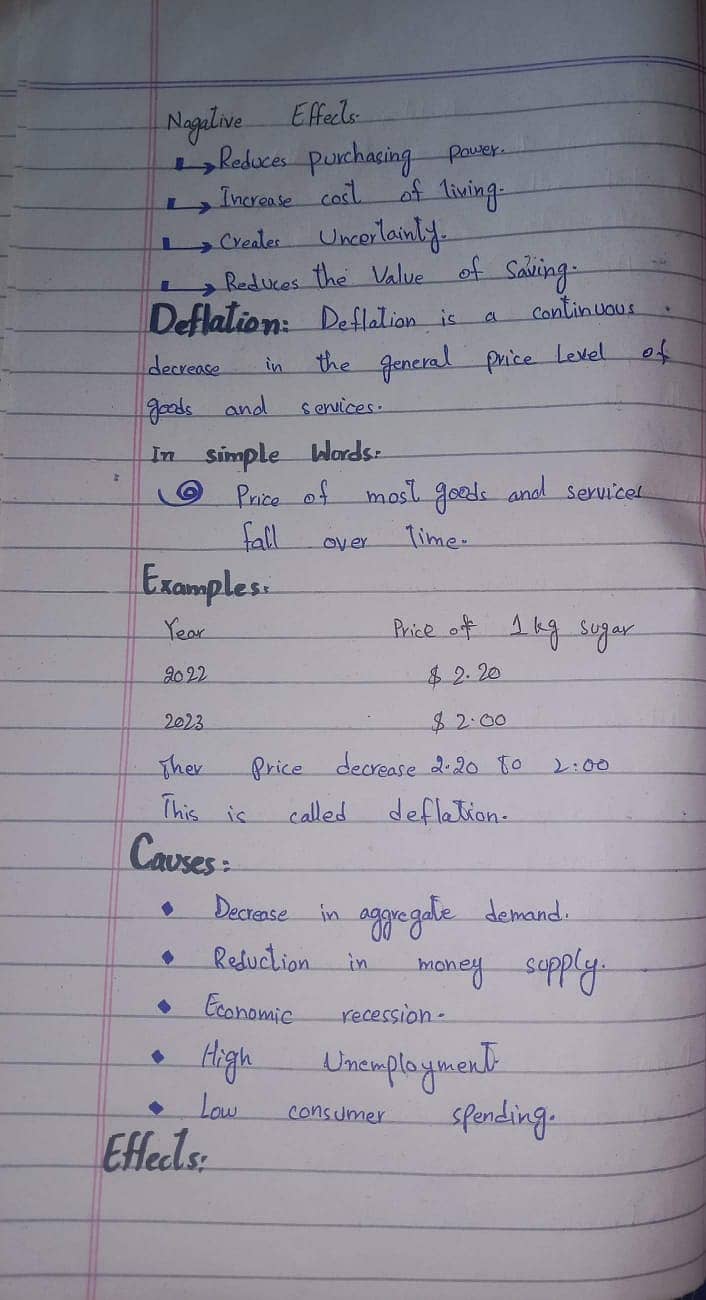 Nagative Effects.
→ Reduces purchasing power.
→ Increase cost of living.
→ Creates Uncertainty.
→ Reduces the Value of Saving.
Deflation: Deflation is a continuous
decrease in the general price Level of
goods and services.
In simple Words:
Price of most goods and services
fall over Time.
Examples:
Year Price of 1 kg sugar
2022 $ 2.20
2023 $ 2.00
Ther Price decrease 2.20 to 2:00
This is called deflation.
Causes:
• Decrease in aggregate demand.
• Reduction in money supply.
• Economic recession.
• High Unemployment
• Low consumer spending.
Effects: